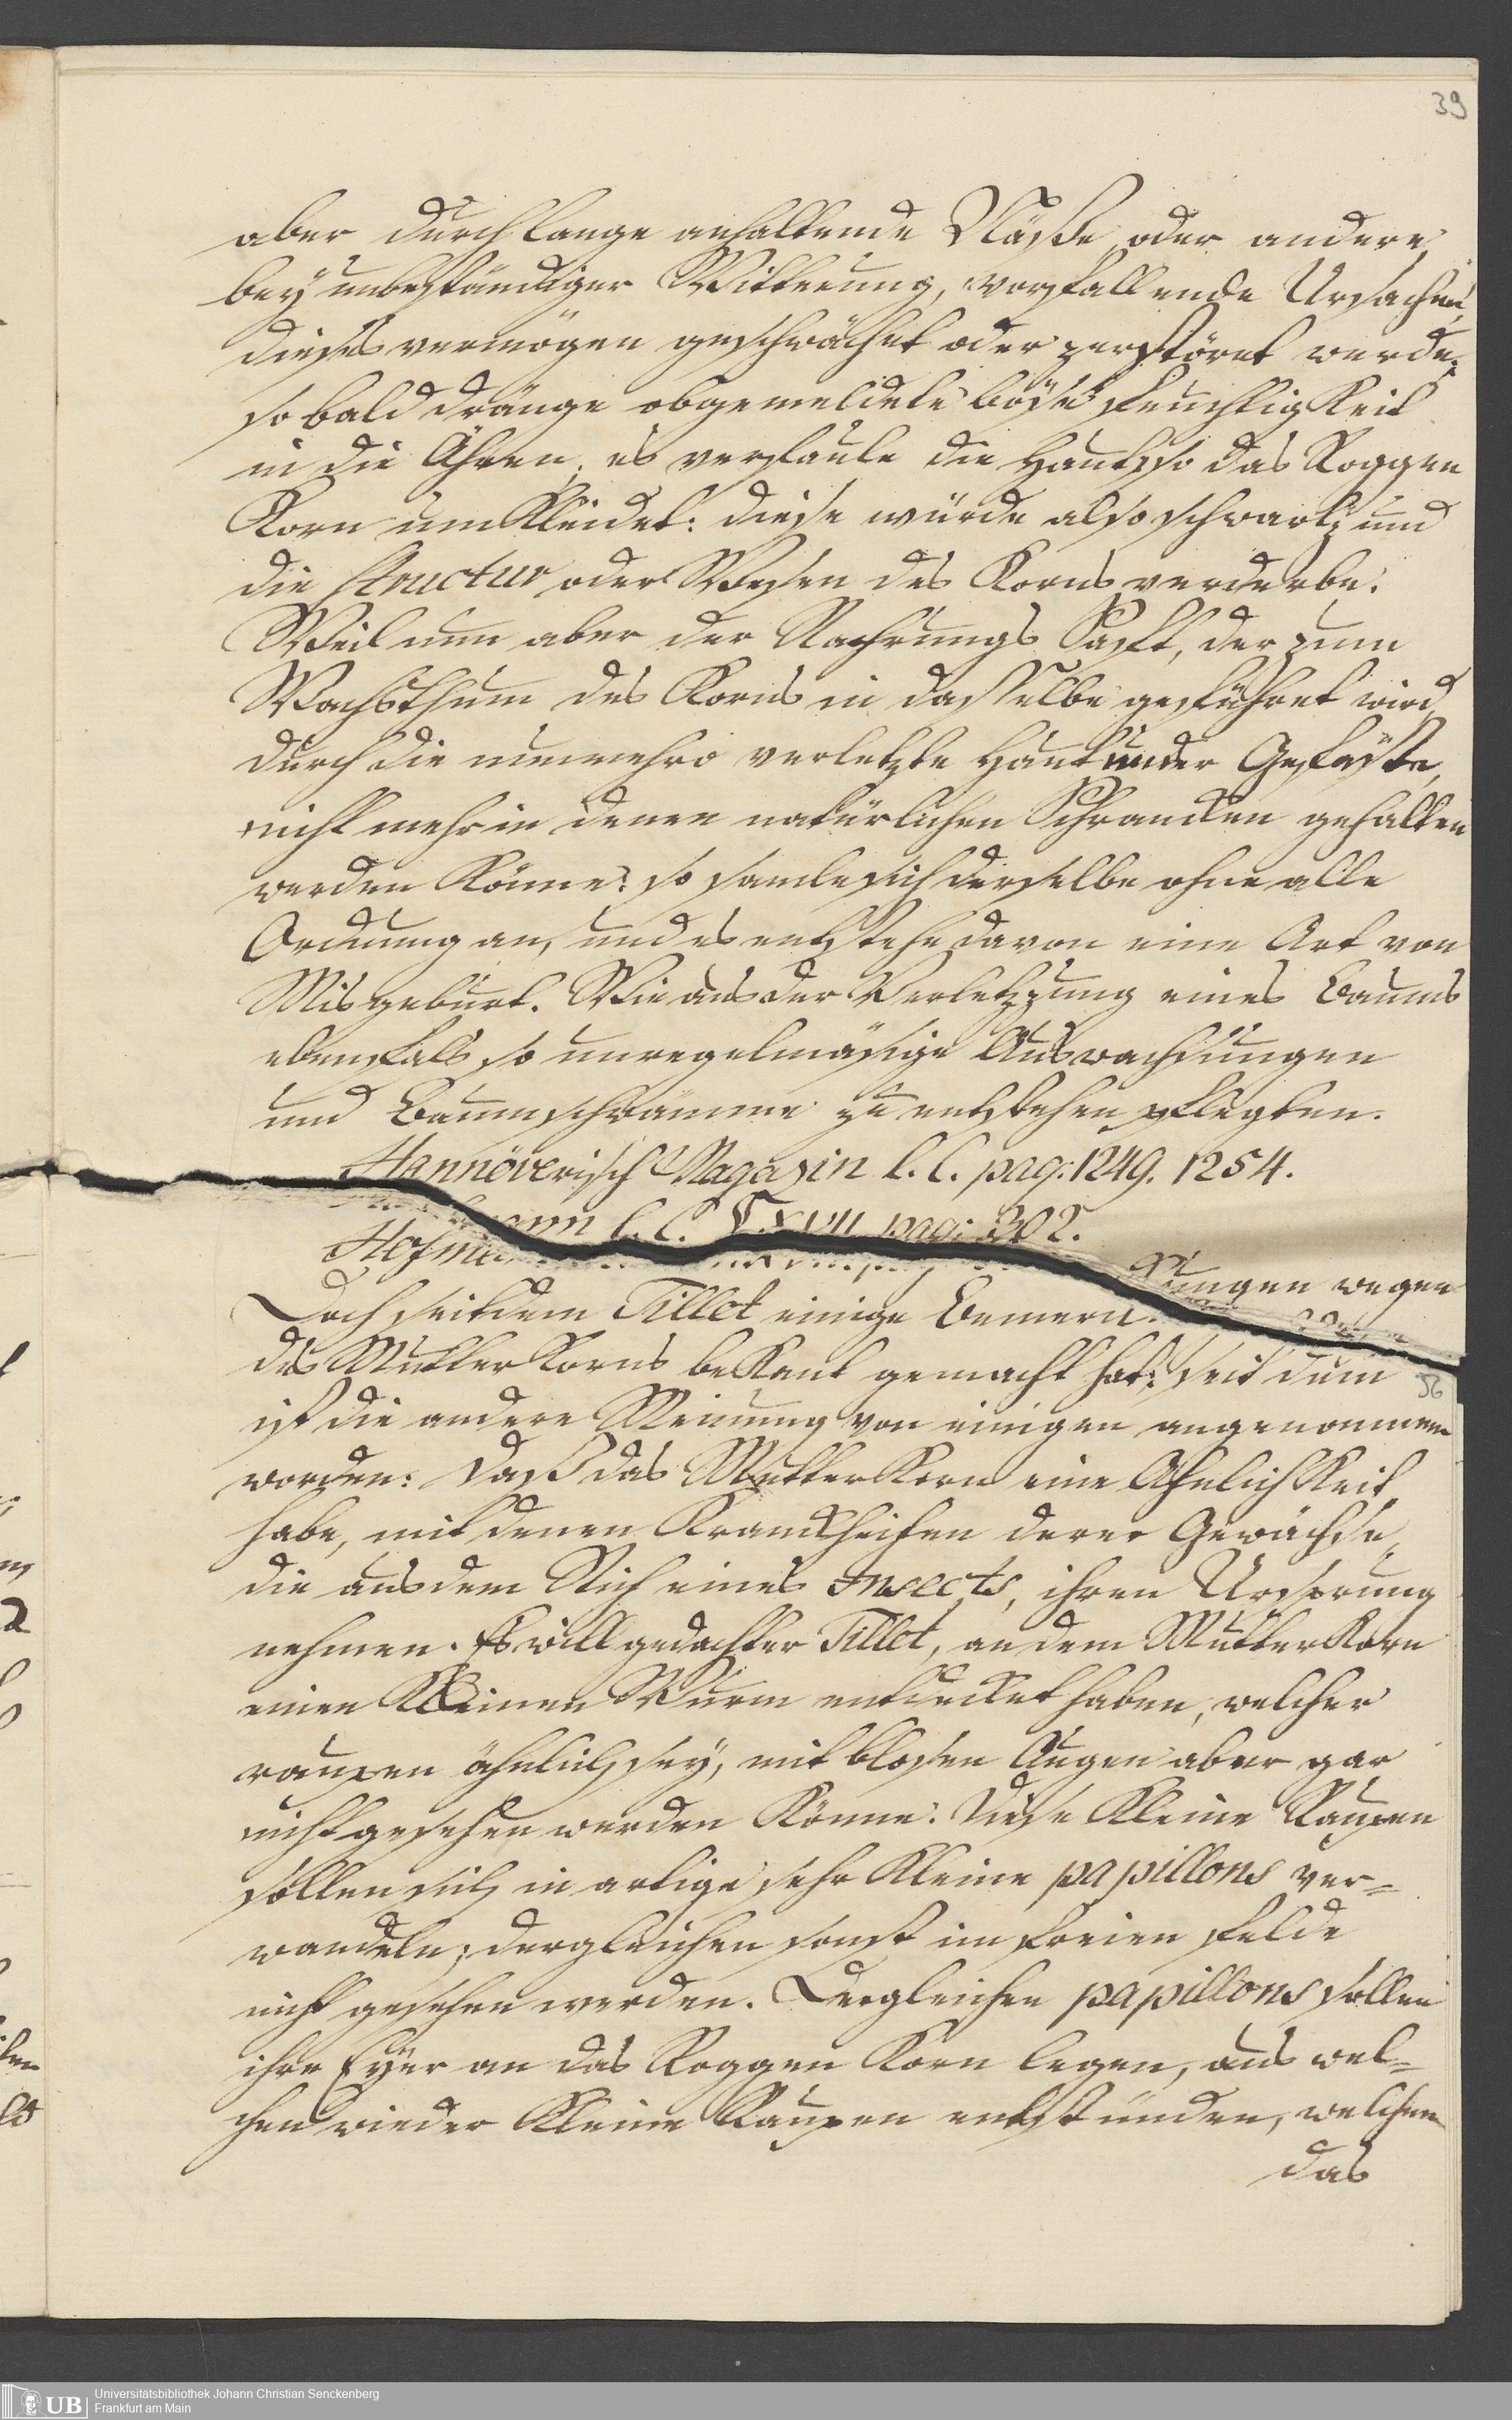 39
aber durch lange anhaltende Näße oder andere,
bey unbeständiger Witterung, vorfallende Ursachen,
dieses vermögen geschwächet oder zerstöret werde;
so bald dränge obgemeldete böse feuchtigkeit
in die Ähren, es verfaule die Haut, so das Roggen
Korn umkleidet: diese würde also schwartz und
die Structur oder Wesen des Korns verderbe.
Weil nun aber der Nahrungs Saft, der zum
Wachsthum des Korns in dasselbe geführet wird,
durch die nunmehro verletzte Haut und er Gefäße,
nicht mehr in denen natürlichen Schrancken gehalten
werden könne: so samle sich derselbe ohne alle
Ordnung an, und es entstehe davon eine Art von
Misgeburt. Wie aus der Verletzung eines Baums
ebenfals so unregelmäsige Auswachsungen
und Baumschwämme zu entstehen pflegten.
Hannöverisch Magazin l. c. pag: 1249. 1254.
Hofmann l. c. T. XVII. pag: 302.
Doch seitdem Tillet einige Bemerckungen wegen
des Mutter Korns bekant gemacht hat: seit dem
56
ist die andere Meinung von einigen angenommen
worden: daß das Mutter Korn eine Ähnlichkeit
habe, mit denen Kranckheiten derer Gewächse,
die aus dem Stich eines Insects, ihren Ursprung
nehmen. Es will gedachter Tillet, an dem Mutter Korn
einen kleinen Wurm entdecket haben, welcher
raupen ähnlich sey, mit blosen Augen aber gar
nicht gesehen werden könne. Diese kleine Raupen
sollen sich in artige sehr kleine papillons ver=
wandeln, dergleichen sonst im freien felde
nicht gesehen werden. Dergleichen papillons sollen
ihre Eyer an das Roggen Korn legen, aus wel=
chen wieder kleine Raupen entstünden, welchen
das
UB
Universitätsbibliothek Johann Christian Senckenberg
Frankfurt am Main